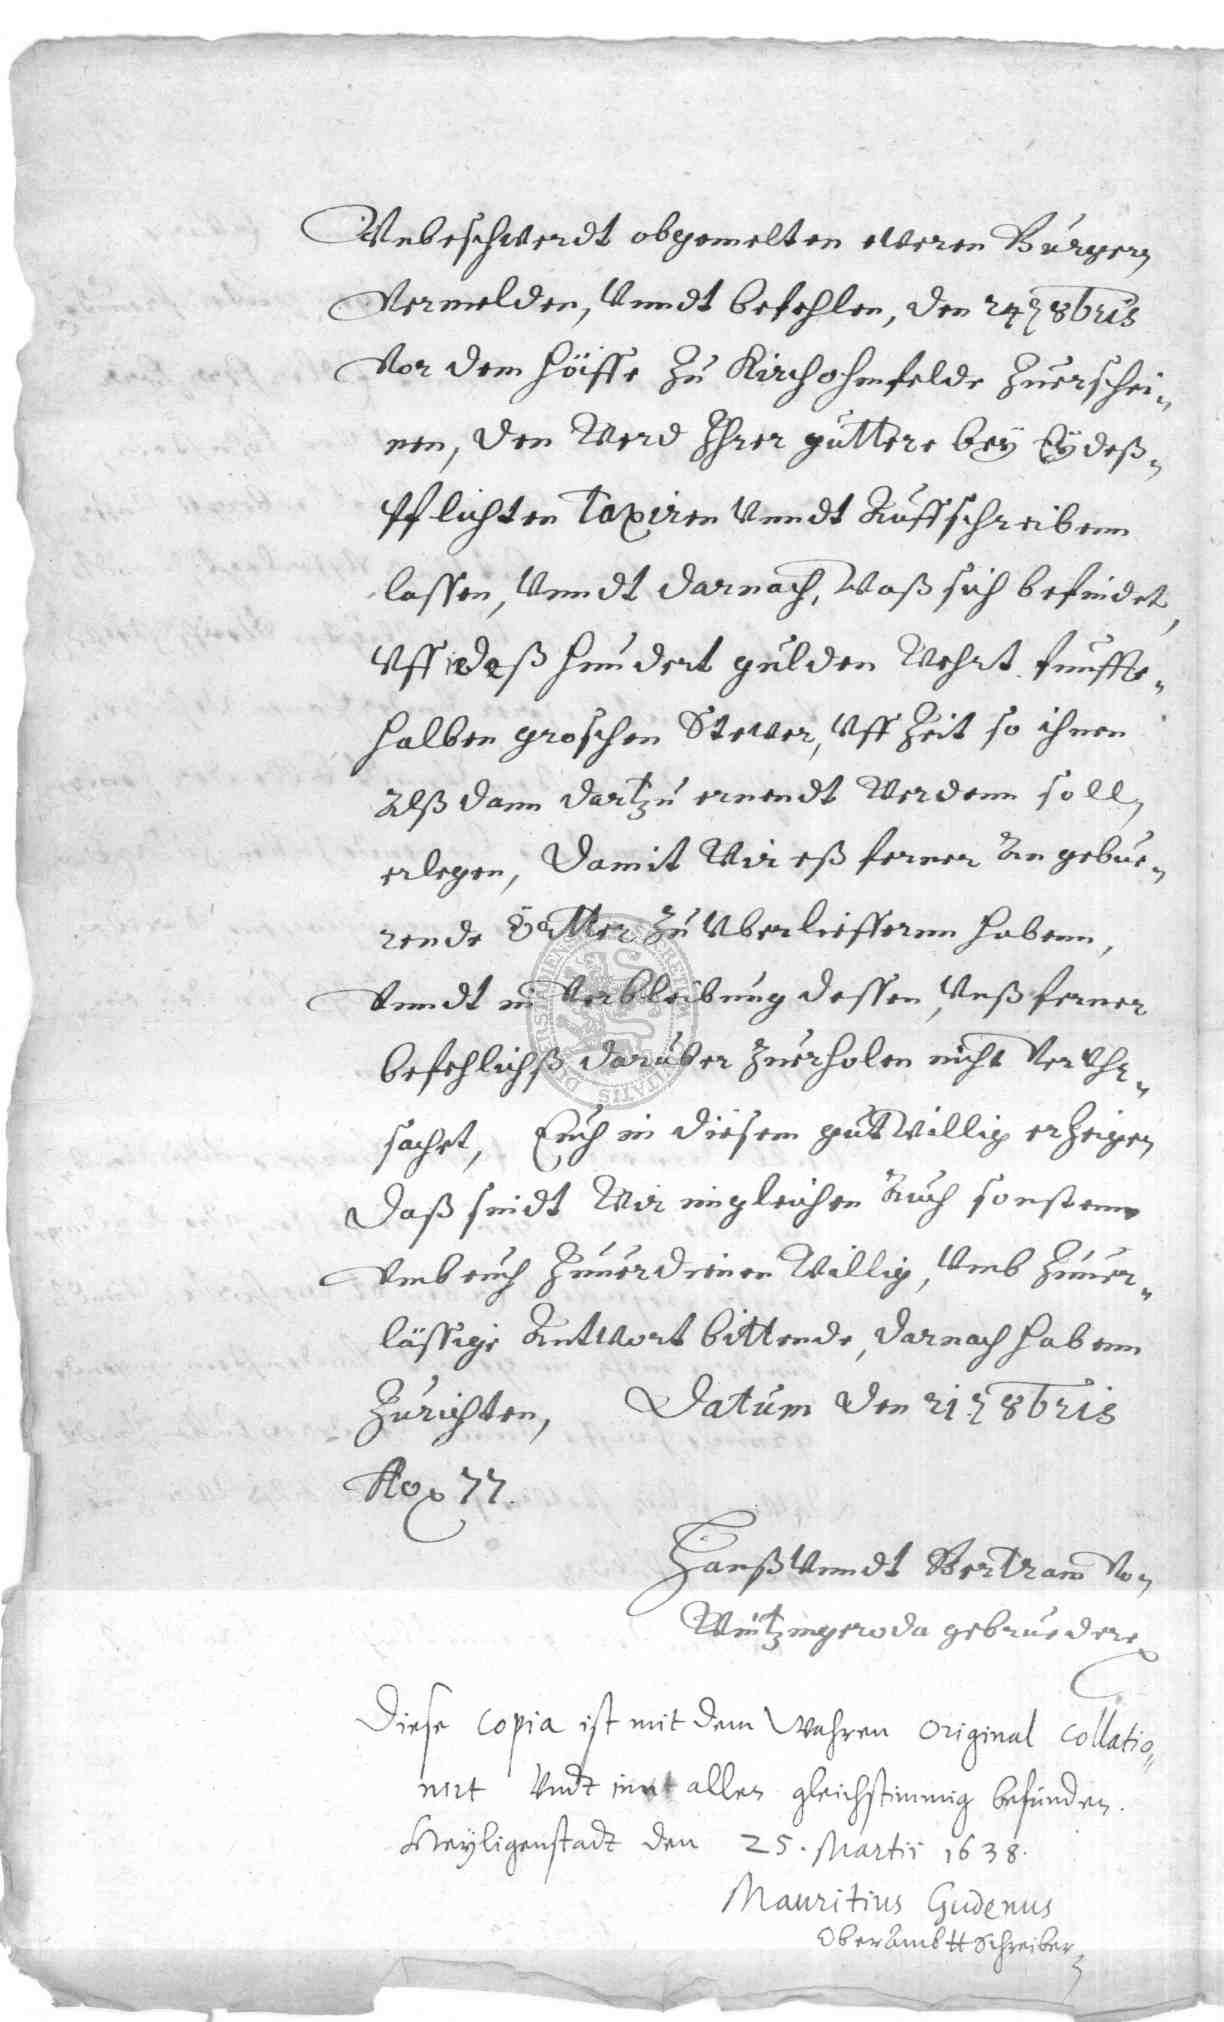 Vnbeschwerdt obgemelten eweren Bürgern
Vermelden, Vnndt befehlen, den 24ᵗ 8bris
Vor dem Höffe zu Kirchohmfelde zuerschei„
nen, den Werd Ihrer güttere bey Eydeß„
Pflichten Taxiren Vnndt Auffschreibenn
lassen, Vnndt darnach, Waß sich befindet,
Vff deß hundert gulden Wehrt funffte„
halben groschen Stewer, Vff Zeit so ihnen
Alß dann dartzu ernendt Werdenn soll,
erlegen, Damit Wir eß ferner An gebue„
rende Örtter zu Vberlieffernn habenn,
Vnndt in Verbleibung dessen, Vnß ferner
befehlichß darüber zuerholen nicht VerVhr„
sachet, Euch in diesem gutwillig erzeigen
Daß sindt Wir ingleichen Auch sonstenn
Vmb euch Zuuerdienen Willig, Vmb Zuuer„
lässige Antwort bittende, darnach habenn
Zurichten, Datum den 21ᵗ 8bris
Ao 77.
Hanß Vnndt Bertram Von
Wintzingeroda gebruedere
Diese Copia ist mit dem Wahren Original Collatio„
nirt Vndt inn allen gleichstimmig befunden.
Heyligenstadt den 25. Martii 1638.
Mauritius Gudenus
OberAmbtt Schreiber